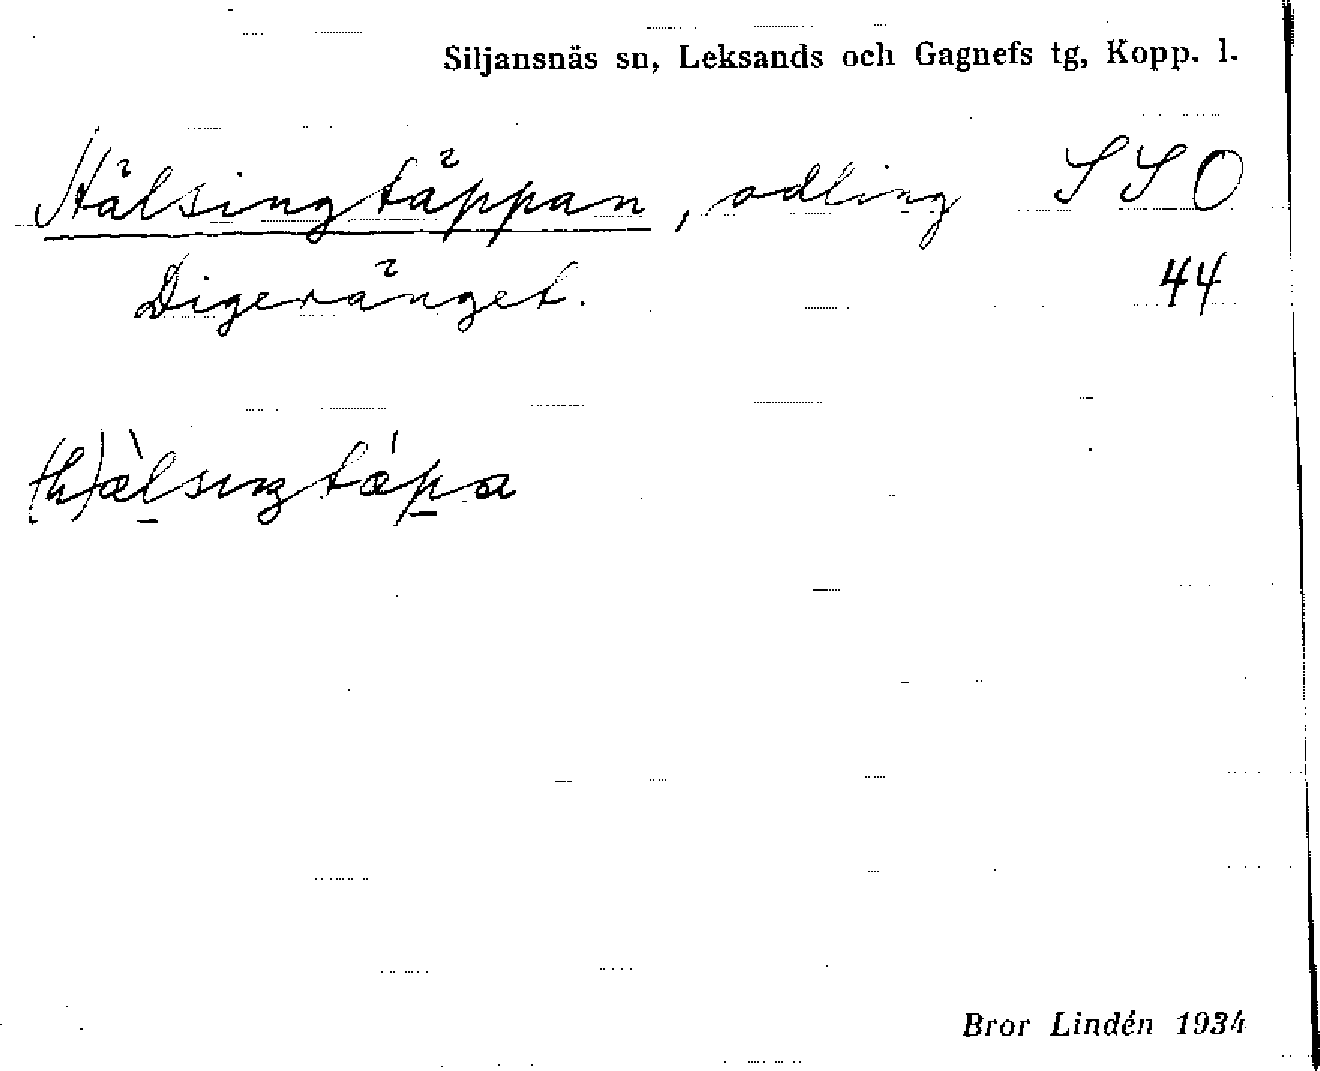 Siljansnäs sn, Leksands och Gagnefs tg, Kopp. l.
Hälsingtäppan, odling SSO
Digeränget. 44
(h)älsıŋtäpa
Bror Lindén 1934